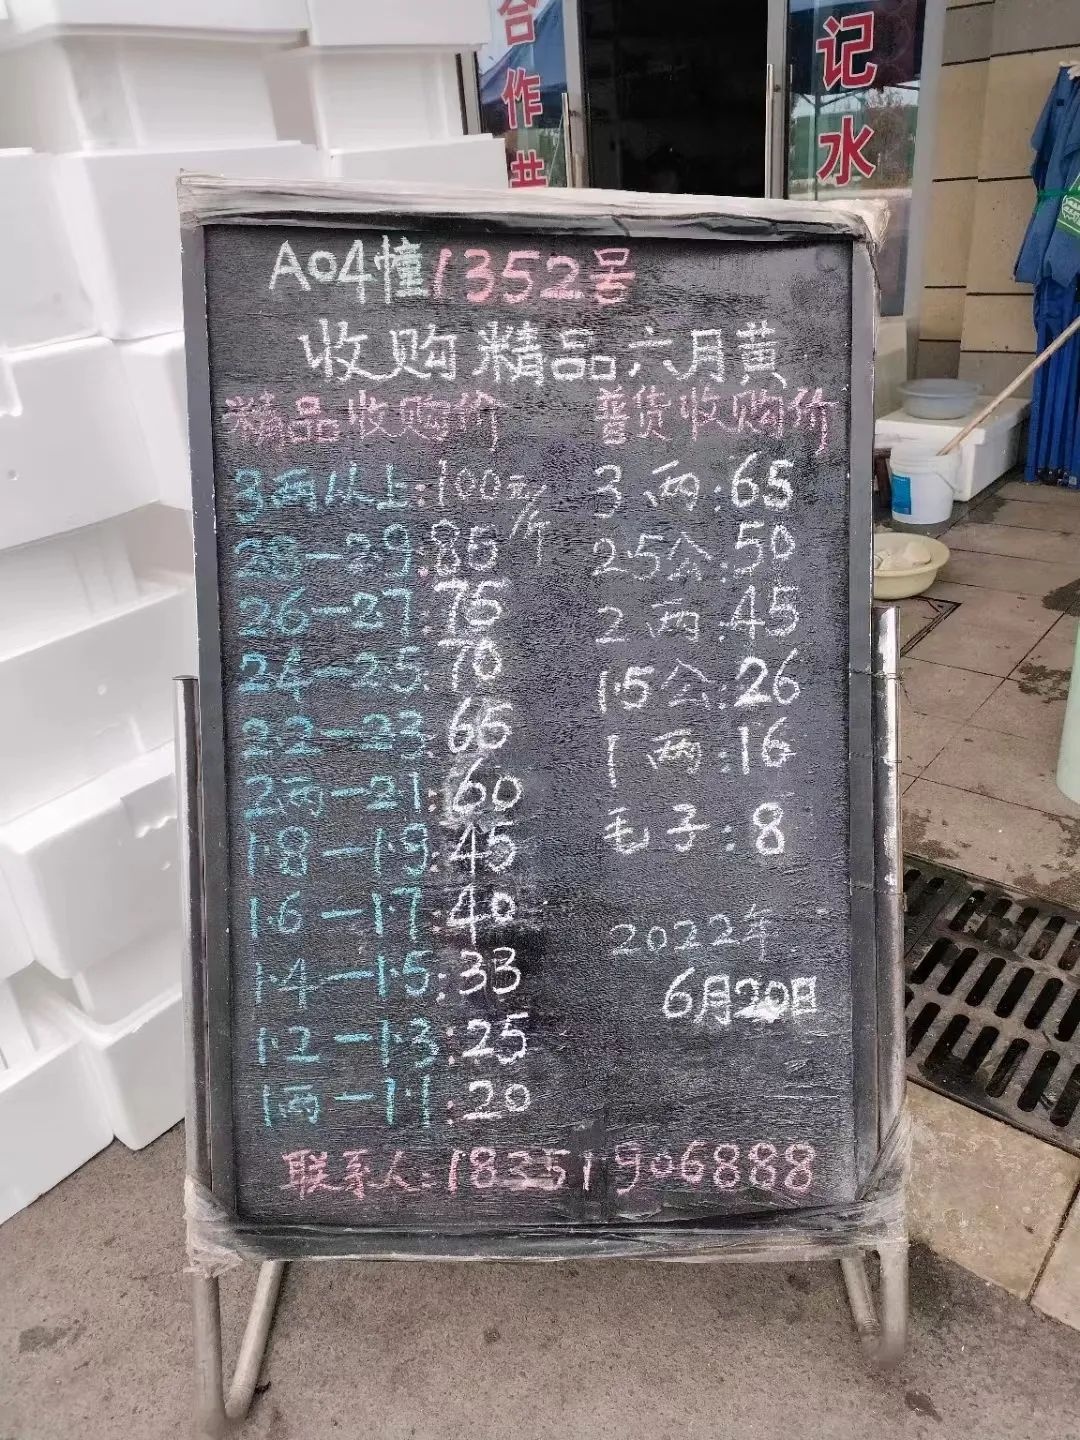 合作共
记水
A04幢1352号
收购精品六月黄
精品收购价
3两以上:100元/斤
28-29:85
26-27:75
24-25:70
22-23:65
2两-21:60
1.8-1.9:45
1.6-1.7:40
1.4-1.5:33
1.2-1.3:25
1两-1.1:20
普货收购价
3两:65
2.5公:50
2两:45
1.5公:26
1两:16
毛子:8
2022年
6月20日
联系人:18351906888